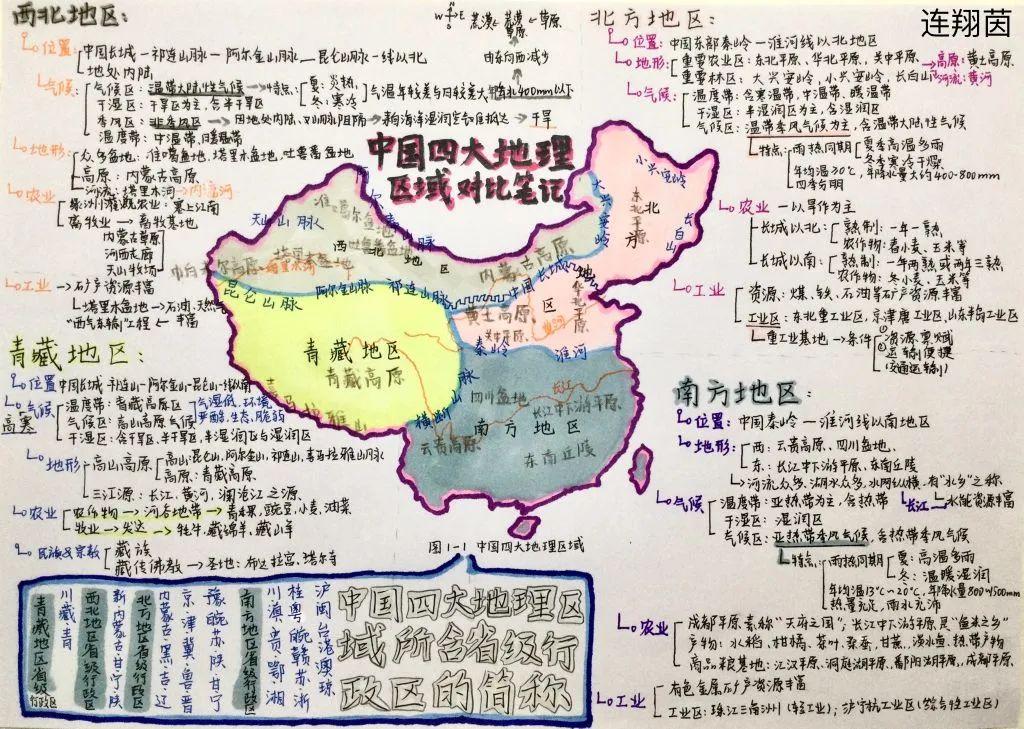 连翔茵
西北地区:
位置:中国长城—祁连山脉—阿尔金山脉—昆仑山脉一线以北
地处内陆
W E
荒漠 草原
由东向西减少
气候:
气候区:温带大陆性气候→特点:
夏:炎热
冬:寒冷
气温年较差与日较差大
400mm以下
干湿区:干旱区为主,含半干旱区
季风区:非季风区→因地处内陆,又山脉阻隔→
→干旱
温度带:中温带、暖温带
地形:
众多盆地:准噶尔盆地、塔里木盆地、吐鲁番盆地
高原:内蒙古高原
河流:塔里木河→内流河
农业
绿洲灌溉农业:塞上江南
畜牧业→畜牧基地
内蒙古草原
河西走廊
天山牧场
工业→矿产资源丰富
塔里木盆地→石油、天然气丰富
“西气东输”工程
青藏地区:
位置 中国长城-祁连山-阿尔金山-昆仑山一线以南
气候
高寒
温度带:青藏高原区
气候区:高山高原气候
气温低、环境
严酷、生态脆弱
干湿区:含干旱区、半干旱区、半湿润区与湿润区
地形
高山高原
高山:昆仑山、阿尔金山、祁连山、喜马拉雅山脉
高原:青藏高原
三江源:长江、黄河、澜沧江之源
农业
农作物→河谷地带→青稞、豌豆、小麦、油菜
牧业→发达→牦牛、藏绵羊、藏山羊
民族与宗教
藏族
藏传佛教→圣地:布达拉宫、塔尔寺
中国四大地理
区域对比笔记
小兴安岭
大兴安岭
东北平原
长白山
北方地区
天山山脉
准噶尔盆地
阿尔泰山脉
吐鲁番盆地
西北地区
塔里木盆地
帕米尔高原
塔里木河
内蒙古高原
昆仑山脉
阿尔金山脉
祁连山脉
中国长城
黄土高原
关中平原
黄河
华北平原
青藏地区
青藏高原
秦岭
淮河
横断山脉
四川盆地
长江
长江中下游平原
南方地区
云贵高原
东南丘陵
图1-1 中国四大地理区域
北方地区:
位置:中国东部秦岭—淮河线以北地区
地形:
重要农业区:东北平原、华北平原、关中平原
重要林区:大兴安岭、小兴安岭、长白山
高原:黄土高原
河流:黄河
气候:
温度带:含寒温带、中温带、暖温带
干湿区:半湿润区为主,含湿润区
气候区:温带季风气候为主,含温带大陆性气候
特点:
雨热同期
夏季高温多雨
冬季寒冷干燥
年均温>0℃,年降水量大约400-800mm
四季分明
农业—以旱作为主
长城以北:
熟制:一年一熟
农作物:春小麦、玉米等
长城以南:
熟制:一年两熟或两年三熟
农作物:冬小麦、玉米等
工业
资源:煤、铁、石油等矿产资源丰富
工业区:东北重工业区,京津唐工业区,山东半岛工业区
重工业基地→条件
①资源禀赋
②运输便捷
(交通运输)
南方地区:
位置:中国秦岭—淮河线以南地区
地形:
西:云贵高原、四川盆地、
东:长江中下游平原、东南丘陵
→河流众多、湖泊众多、水网纵横,有“水乡”之称
长江—水能资源丰富
气候
温度带:亚热带为主,含热带
干湿区:湿润区
气候区:亚热带季风气候,含热带季风气候
特点:
雨热同期
夏:高温多雨
冬:温暖湿润
年均温13℃~20℃,年降水量800~1500mm
热量充足,雨水充沛
农业
成都平原素称“天府之国”;长江中下游平原是“鱼米之乡”
产物:水稻、柑橘、茶叶、桑蚕、甘蔗、淡水鱼、热带产物
商品粮基地:江汉平原、洞庭湖平原、鄱阳湖平原、成都平原
工业
有色金属矿产资源丰富
工业区:珠江三角洲(轻工业);沪宁杭工业区(综合性工业区)
中国四大地理区
域所含省级行
政区的简称
沪闽台港澳琼
桂粤皖赣苏浙
川滇贵鄂湘
南方地区省级行政区
豫皖苏陕甘宁
京津冀鲁晋
内蒙古黑吉辽
北方地区省级行政区
新内蒙古甘宁陕
西北地区省级行政区
川藏青
青藏地区省级行政区